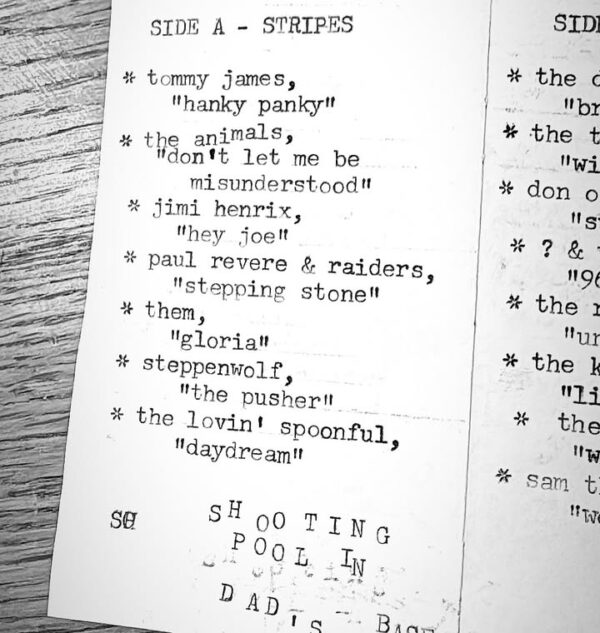 SIDE A - STRIPES
* tommy james,
"hanky panky"
* the animals,
"don't let me be
misunderstood"
* jimi henrix,
"hey joe"
* paul revere & raiders,
"stepping stone"
* them,
"gloria"
* steppenwolf,
"the pusher"
* the lovin' spoonful,
"daydream"
SHOOTING
POOL IN
DAD'S
* the
* the
* don
* ? &
"96
* the
* the
* the
* sam